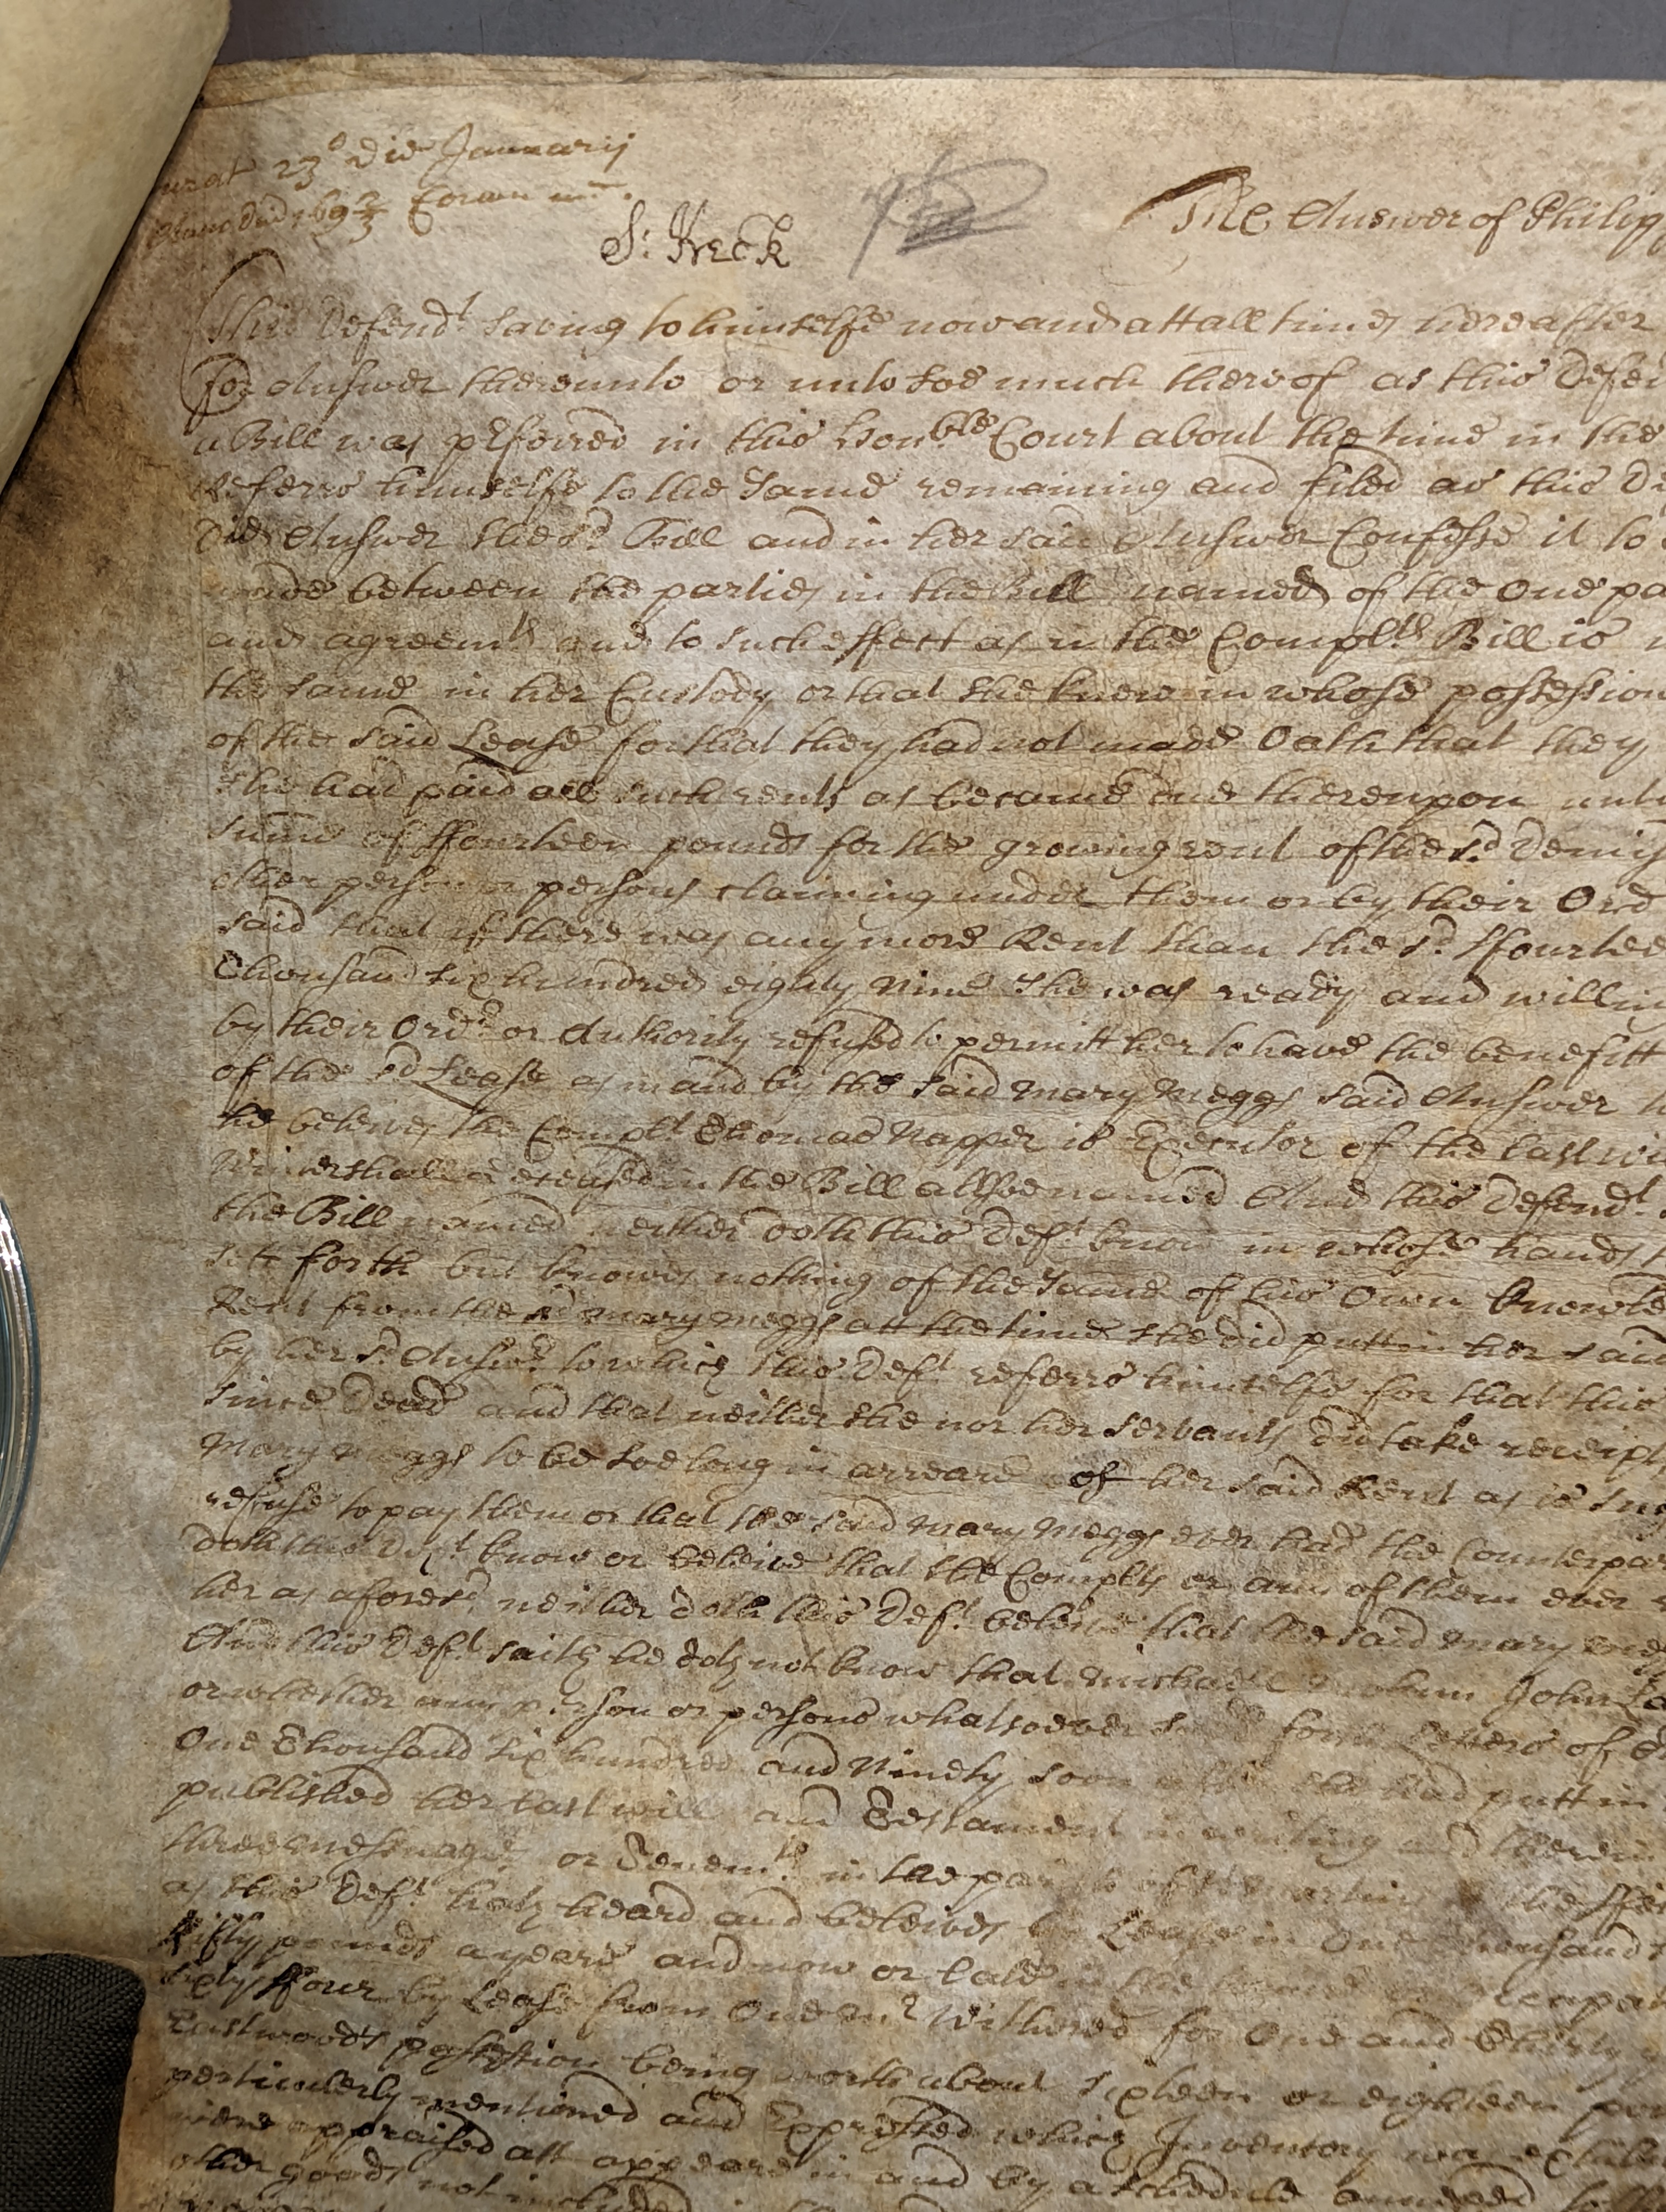 urat 23º die Januarij
Anno Dni 1692/3 Coram
S: Keck
The Answer of Philip
This Defendt. saving to himselfe now and att all times hereafter
for Answer thereunto or unto soe much thereof as this Defen
a Bill was pferred in this Honble Court about the time in the
Referrs himselfe to the same remaining and filed as this De
did Answer the sd. Bill and in her said Answer Confesse it to
made between the parties in the Bill named of the One pa
and agreemts and to such effect as in the Complts. Bill is
the same in her Custody or that she knew in whose possession
of the said Lease for that they had not made Oath that they
she had paid all such rents as became due thereupon unt
summe of ffourteen pounds for the growing rent of the sd. Demis
other person or persons claiming under them or by their Ord
said that if there was any more Rent than the sd. ffourtee
Thousand six hundred eighty Nine She was ready and willing
by their Ordr. or Authority refused to permitt her to have the benefitt
of the sd Lease as in and by the said Mary Meggs said Answer
he beleives the Complt. Thomas Napper is Executor of the last wi
deceased in the Bill allsoe named And this Defendt.
the Bill named neither doth this Deft. know in whose hands
sett forth but knowes nothing of the same of his Own knowle
Rent from the sd Mary Meggs att the time she did putt in her said
by her sd. Answr. to which this Deft. referrs himselfe for that this
since dead and that neither she nor her servants did take receipt
Mary Meggs to be soe long in arreare of her said Rent as is Sug
refuse to pay them or that the said Mary Meggs ever had the Counterpar
doth this Deft. know or beleive that the Complts or any of them ever
her as aforesd. neither doth this Deft. beleive that the said Mary Me
And this Deft. saith he doth not know that John
or whether any person or persons whatsoever forth Letters of
One Thousand six hundred and Ninety soon she had putt in
published her last will and Testament in writing and therein
three messuages or Tenemts. in the the ffei
as this Deft. hath heard and beleives by Lease in One Thousand
fifty pounds a yeare and now or late in the
sixty ffour by Lease from One Mr. Withered for One and Thirty
Eastwoods possession being worth about sixteen or eighteen po
perticulerly mentioned and Expressed which Inventory was exhibi
were appraised att appeare in and by a schedule annexed
other goods not